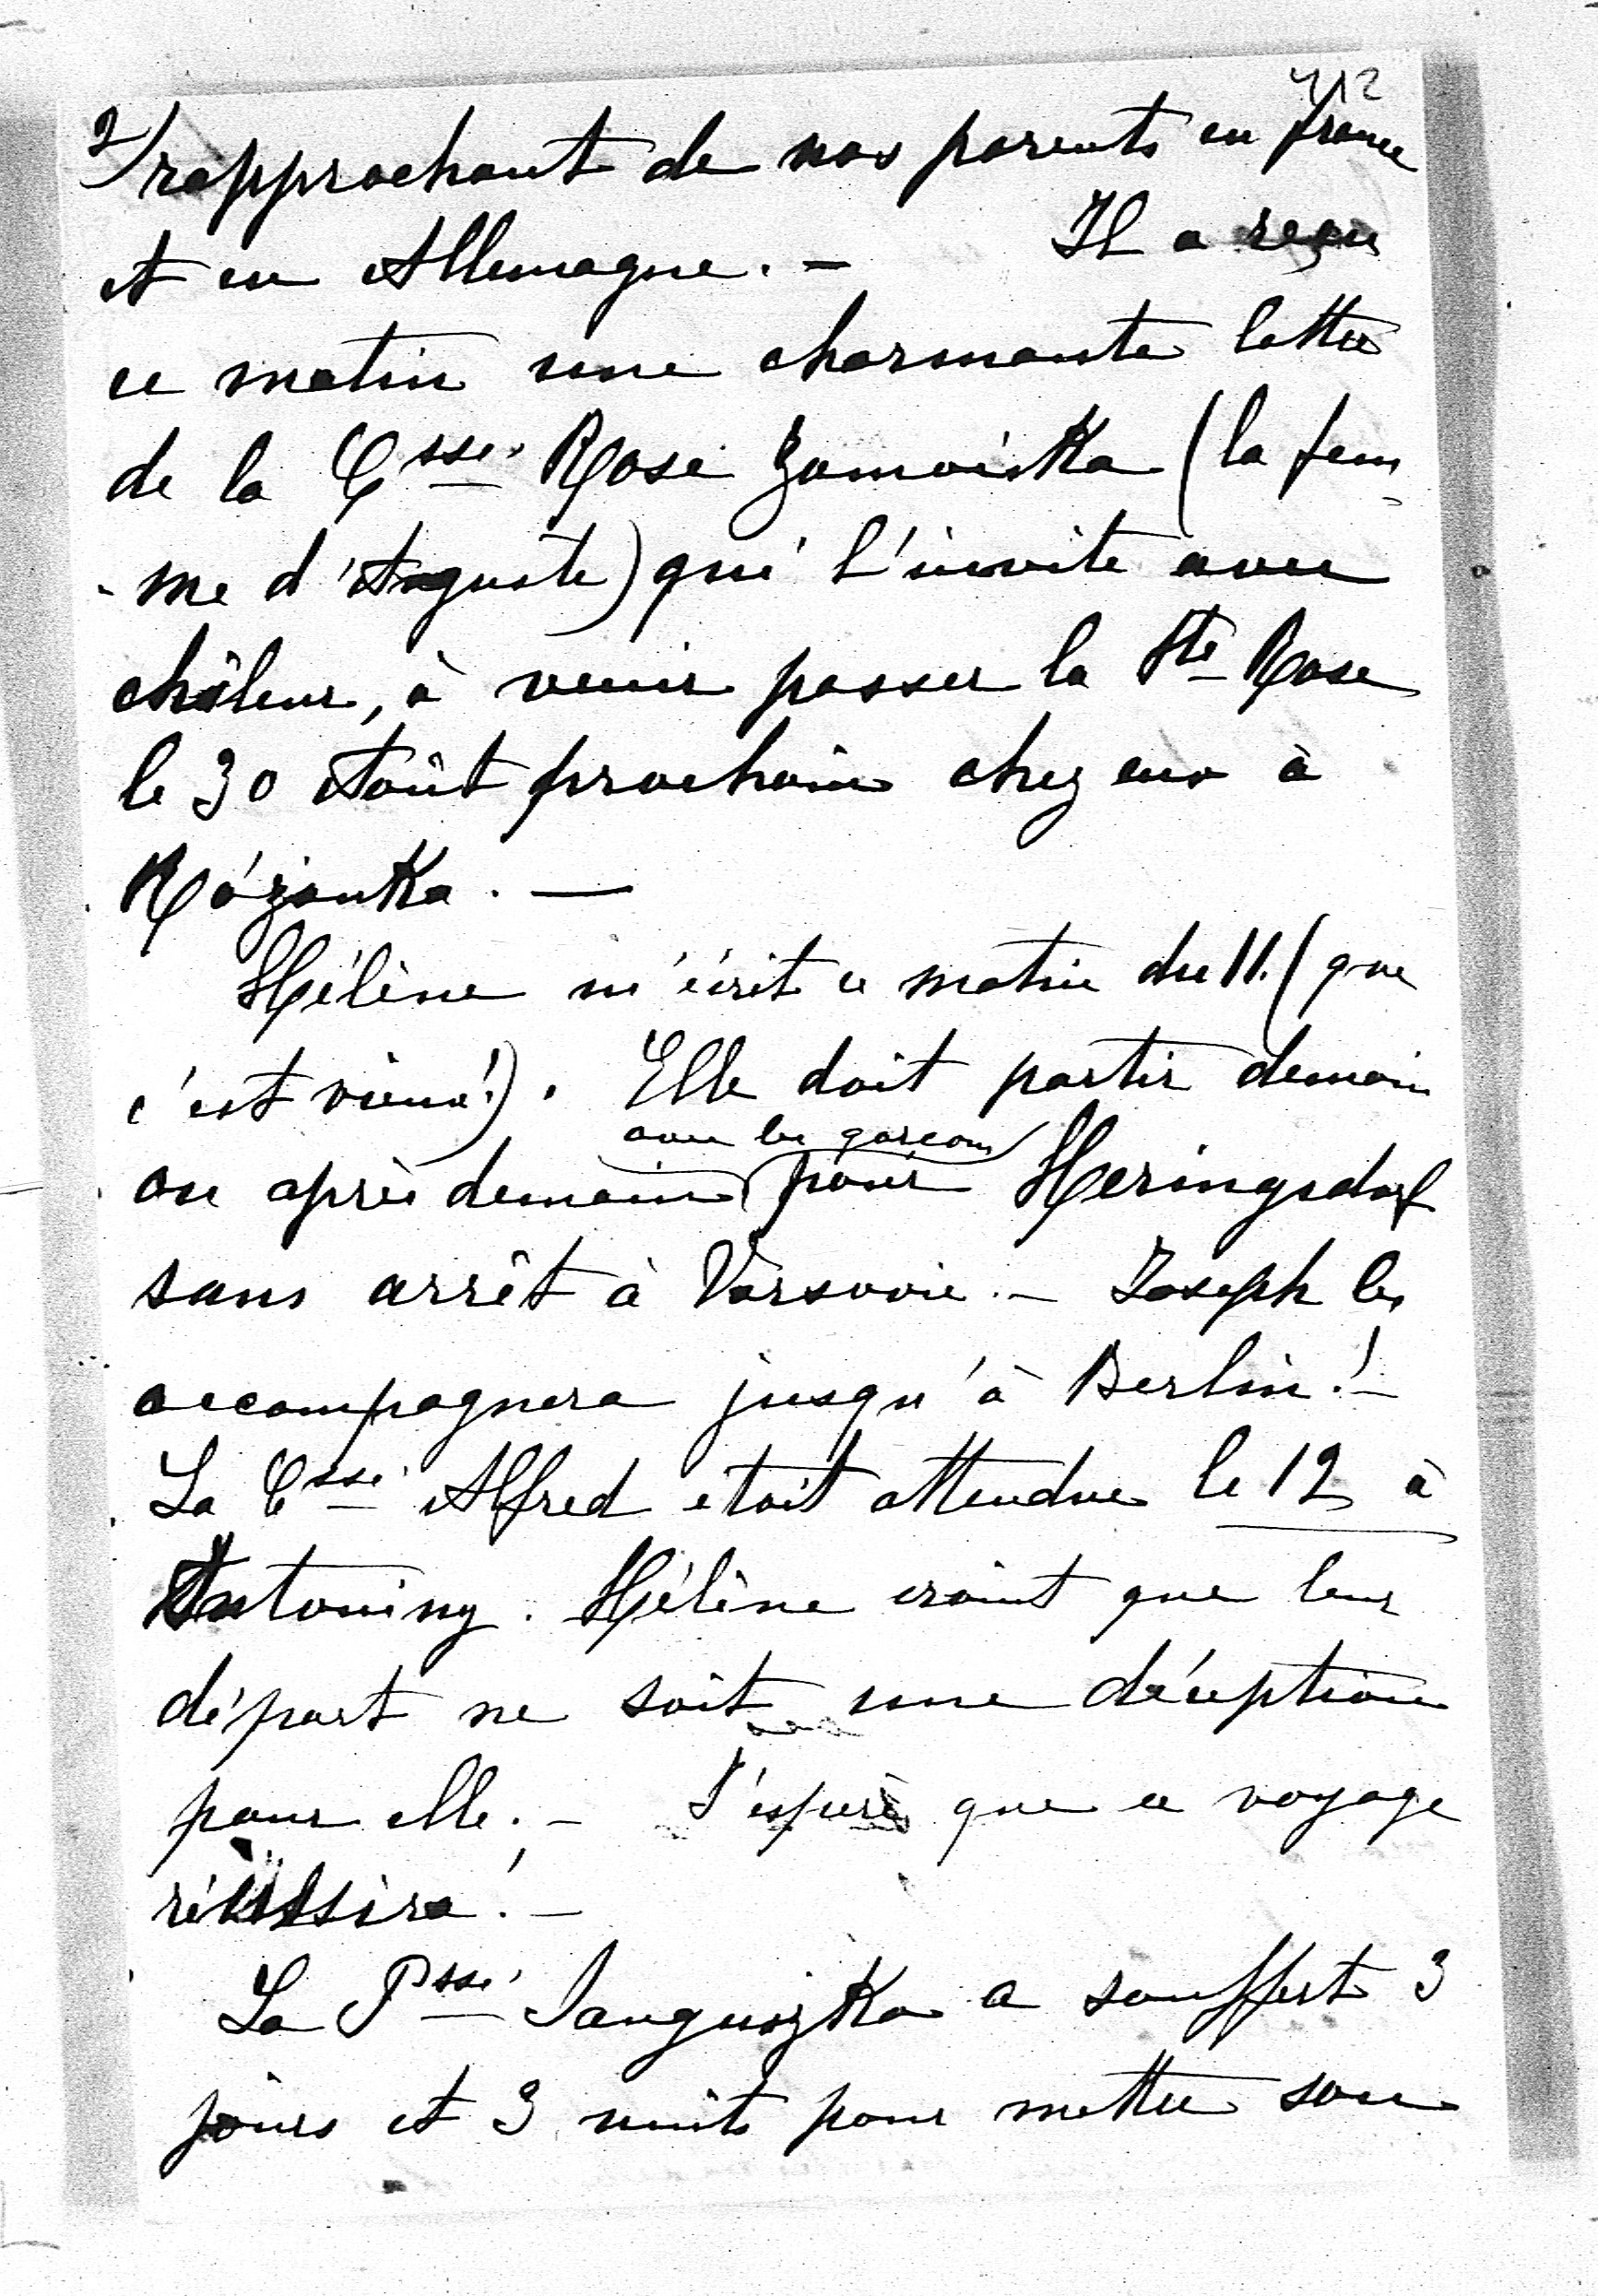 412
2) rapprochant de nos parents en france
et en Allemagne. – Il a reçu
ce matin une charmante lettre
de la Csse. Rose Zamoiska (la fem
-me d'Auguste) qui l'invite avec
châleur, à venir passer la Ste Rose
le 30 Août prochain chez eux à
Rózanka. —
Hélène m'écrit ce matin du 11. (que
c'est vieux!). Elle doit partir demain
avec les garçons
ou après demain pour Heringsdorf
sans arrêt à Varsovie. – Joseph les
accompagnera jusqu'à Berlin! –
La Csse Alfred etait attendue le 12 à
Antoniny. Hélène craint que leur
départ ne soit une déception
pour elle. – J'espère que ce voyage
réussira! –
La Psse Sanguszka a souffert 3
jours et 3 nuits pour mettre son